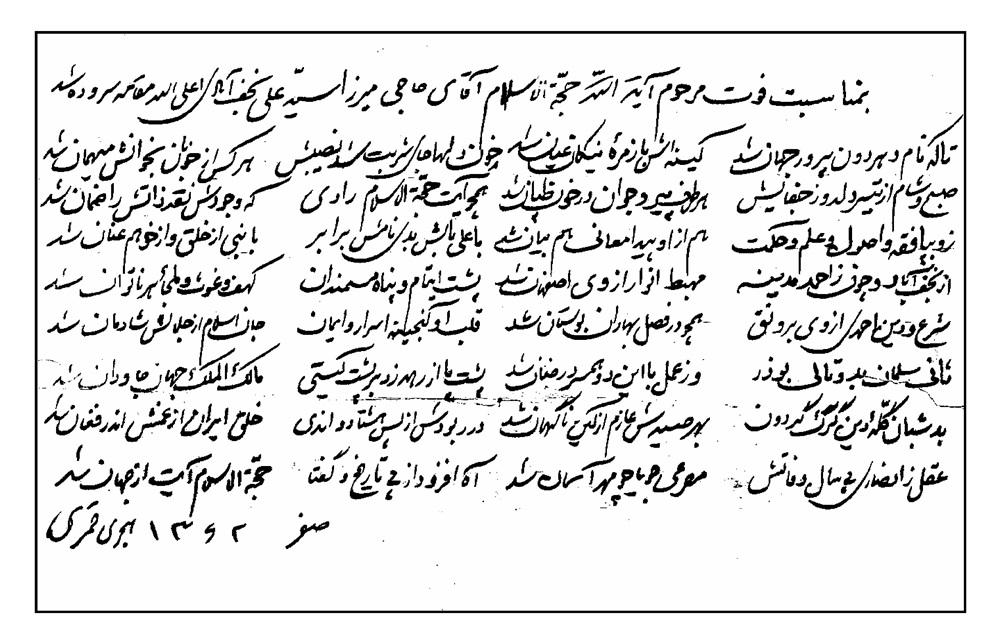 بمناسبت فوت مرحوم آیة الله حجة الاسلام آقای حاجی میرزا سید علی نجف آبادی اعلی الله مقامه سروده شد
تا که نام و هر دون پرور جهان شد کینه اش با زمره نیکان عیان شد خون دلها جای شربت شد نصیبش هر کس از خوبان بخوانش میهمان شد
صبح و شام از تیر دلدوز جفایش هر طرف پیر و جوان در خون طپان شد همچو آیت حجة الاسلام رادی که وجودش نقد ذاتش را ضمان شد
زو بپا فقه و اصول و علم و حکمت هم از او پیدا معانی هم بیان شد با علی نامش بدی نامش برابر با نبی از خلق و از خو هم عنان شد
از نجف آباد و چون زاحمد مدینه مهبط انوار از وی اصفهان شد پشت ایتام و پناه مستمندان کهف و غوث و ملجأ هر ناتوان شد
شرع و دین احمدی از وی برونق همچو در فصل بهاران بوستان شد قلب او گنجینه اسرار و ایمان جان اسلام از جلالش شادمان شد
ثانی سلمان بد و تالی بوذر وز عمل با این دو همسر در جنان شد پشت پا از زهد زد بر پشت گیتی مالک الملک جهان جاودان شد
بد شبان گله دین گرگ گردون بهر صیدش عازم از کین ناگهان شد در ربودش از پس هشتاد و اندی خلق ایران از غمش اندر فغان شد
عقل ز انصاری پی سال وفاتش موعی جویا چو مهر آسمان شد آه افزود از پی تاریخ و گفتا حجة الاسلام آیت از جهان شد
صفر ۱۳۶۲ هجری قمری